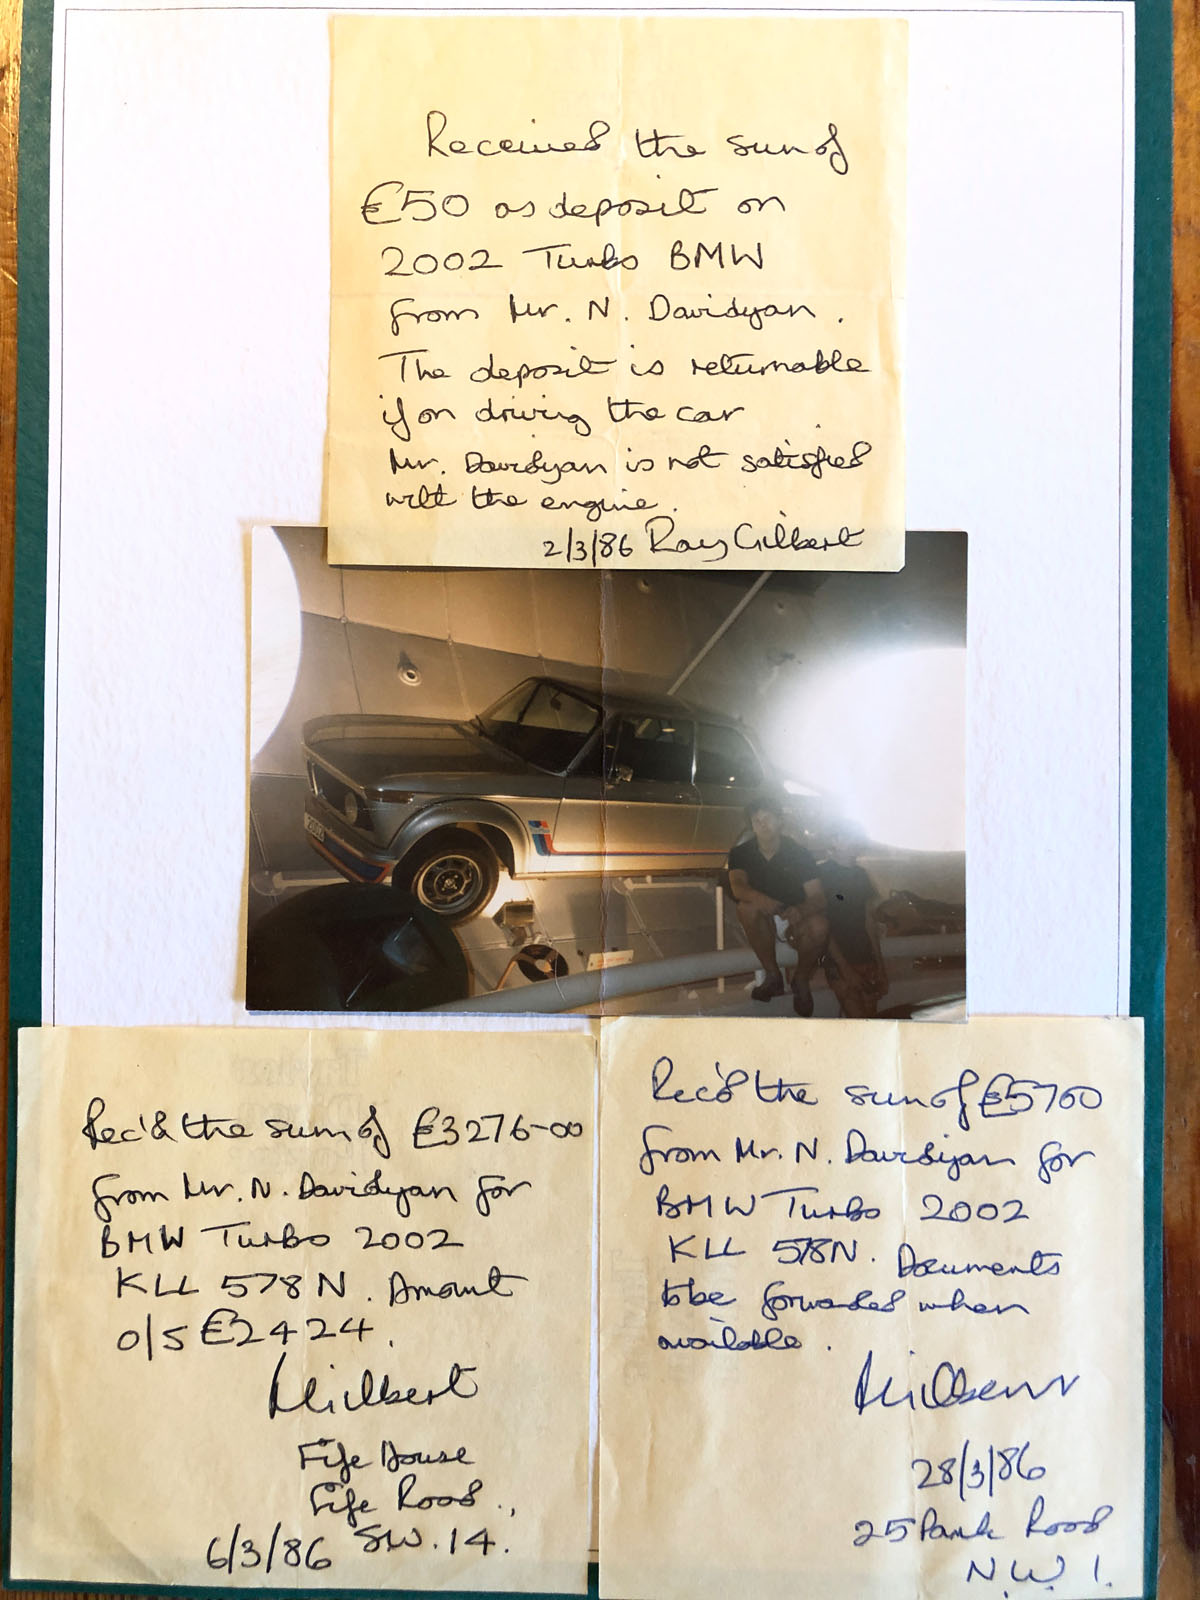 Received the sum of
£50 as deposit on
2002 Turbo BMW
from Mr. N. Davidyan.
The deposit is returnable
if on driving the car
Mr. Davidyan is not satisfied
with the engine.
2/3/86 Ray Gilbert
2002
turbo
Rec'd the sum of £3276-00
from Mr. N. Davidyan for
BMW Turbo 2002
KLL 578N. Amount
O/S £2424.
Gilbert
Fife House
Fife Road.,
6/3/86 SW.14.
Rec'd the sum of £5700
from Mr. N. Davidyan for
BMW Turbo 2002
KLL 578N. Documents
to be forwarded when
available.
Gilbert
28/3/86
25 Park Road
N.W.1.